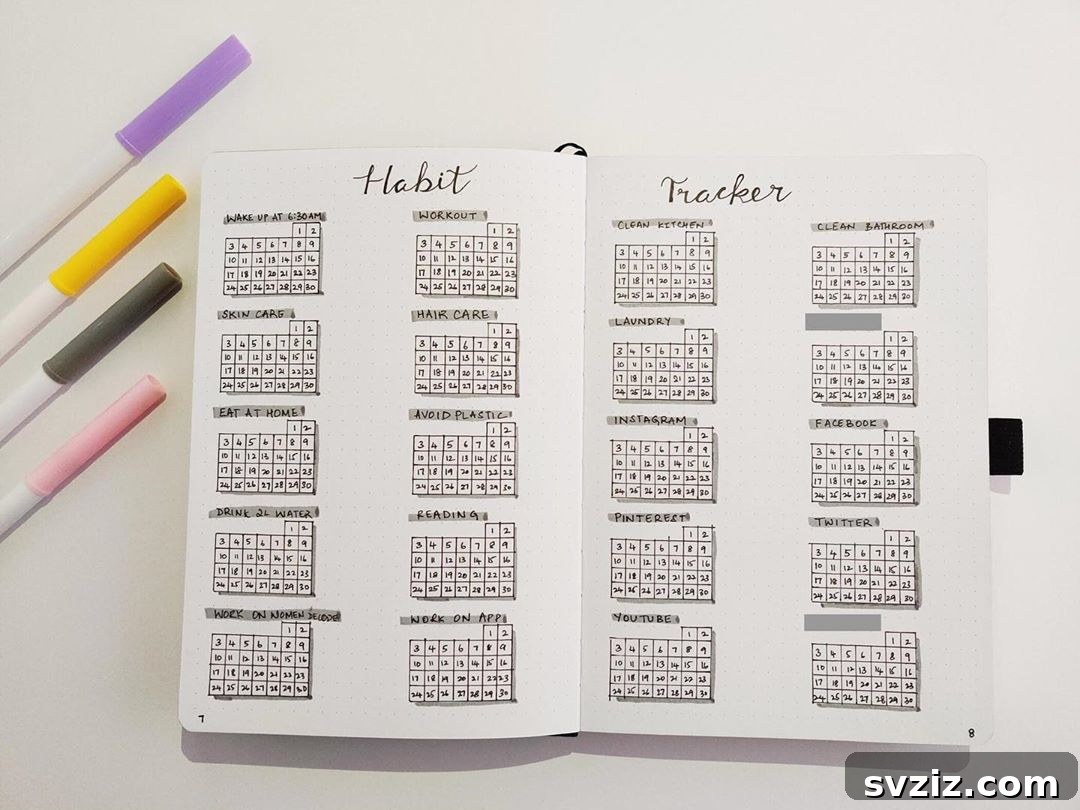 Habit
WAKE UP AT 6:30AM
1 2
3 4 5 6 7 8 9
10 11 12 13 14 15 16
17 18 19 20 21 22 23
24 25 26 27 28 29 30
WORKOUT
1 2
3 4 5 6 7 8 9
10 11 12 13 14 15 16
17 18 19 20 21 22 23
24 25 26 27 28 29 30
SKIN CARE
1 2
3 4 5 6 7 8 9
10 11 12 13 14 15 16
17 18 19 20 21 22 23
24 25 26 27 28 29 30
HAIR CARE
1 2
3 4 5 6 7 8 9
10 11 12 13 14 15 16
17 18 19 20 21 22 23
24 25 26 27 28 29 30
EAT AT HOME
1 2
3 4 5 6 7 8 9
10 11 12 13 14 15 16
17 18 19 20 21 22 23
24 25 26 27 28 29 30
AVOID PLASTIC
1 2
3 4 5 6 7 8 9
10 11 12 13 14 15 16
17 18 19 20 21 22 23
24 25 26 27 28 29 30
DRINK 2L WATER
1 2
3 4 5 6 7 8 9
10 11 12 13 14 15 16
17 18 19 20 21 22 23
24 25 26 27 28 29 30
READING
1 2
3 4 5 6 7 8 9
10 11 12 13 14 15 16
17 18 19 20 21 22 23
24 25 26 27 28 29 30
WORK ON WOMEN DECODE
1 2
3 4 5 6 7 8 9
10 11 12 13 14 15 16
17 18 19 20 21 22 23
24 25 26 27 28 29 30
WORK ON APP
1 2
3 4 5 6 7 8 9
10 11 12 13 14 15 16
17 18 19 20 21 22 23
24 25 26 27 28 29 30
7
Tracker
CLEAN KITCHEN
1 2
3 4 5 6 7 8 9
10 11 12 13 14 15 16
17 18 19 20 21 22 23
24 25 26 27 28 29 30
CLEAN BATHROOM
1 2
3 4 5 6 7 8 9
10 11 12 13 14 15 16
17 18 19 20 21 22 23
24 25 26 27 28 29 30
LAUNDRY
1 2
3 4 5 6 7 8 9
10 11 12 13 14 15 16
17 18 19 20 21 22 23
24 25 26 27 28 29 30
1 2
3 4 5 6 7 8 9
10 11 12 13 14 15 16
17 18 19 20 21 22 23
24 25 26 27 28 29 30
INSTAGRAM
1 2
3 4 5 6 7 8 9
10 11 12 13 14 15 16
17 18 19 20 21 22 23
24 25 26 27 28 29 30
FACEBOOK
1 2
3 4 5 6 7 8 9
10 11 12 13 14 15 16
17 18 19 20 21 22 23
24 25 26 27 28 29 30
PINTEREST
1 2
3 4 5 6 7 8 9
10 11 12 13 14 15 16
17 18 19 20 21 22 23
24 25 26 27 28 29 30
TWITTER
1 2
3 4 5 6 7 8 9
10 11 12 13 14 15 16
17 18 19 20 21 22 23
24 25 26 27 28 29 30
YOUTUBE
1 2
3 4 5 6 7 8 9
10 11 12 13 14 15 16
17 18 19 20 21 22 23
24 25 26 27 28 29 30
1 2
3 4 5 6 7 8 9
10 11 12 13 14 15 16
17 18 19 20 21 22 23
24 25 26 27 28 29 30
8
svziz.com